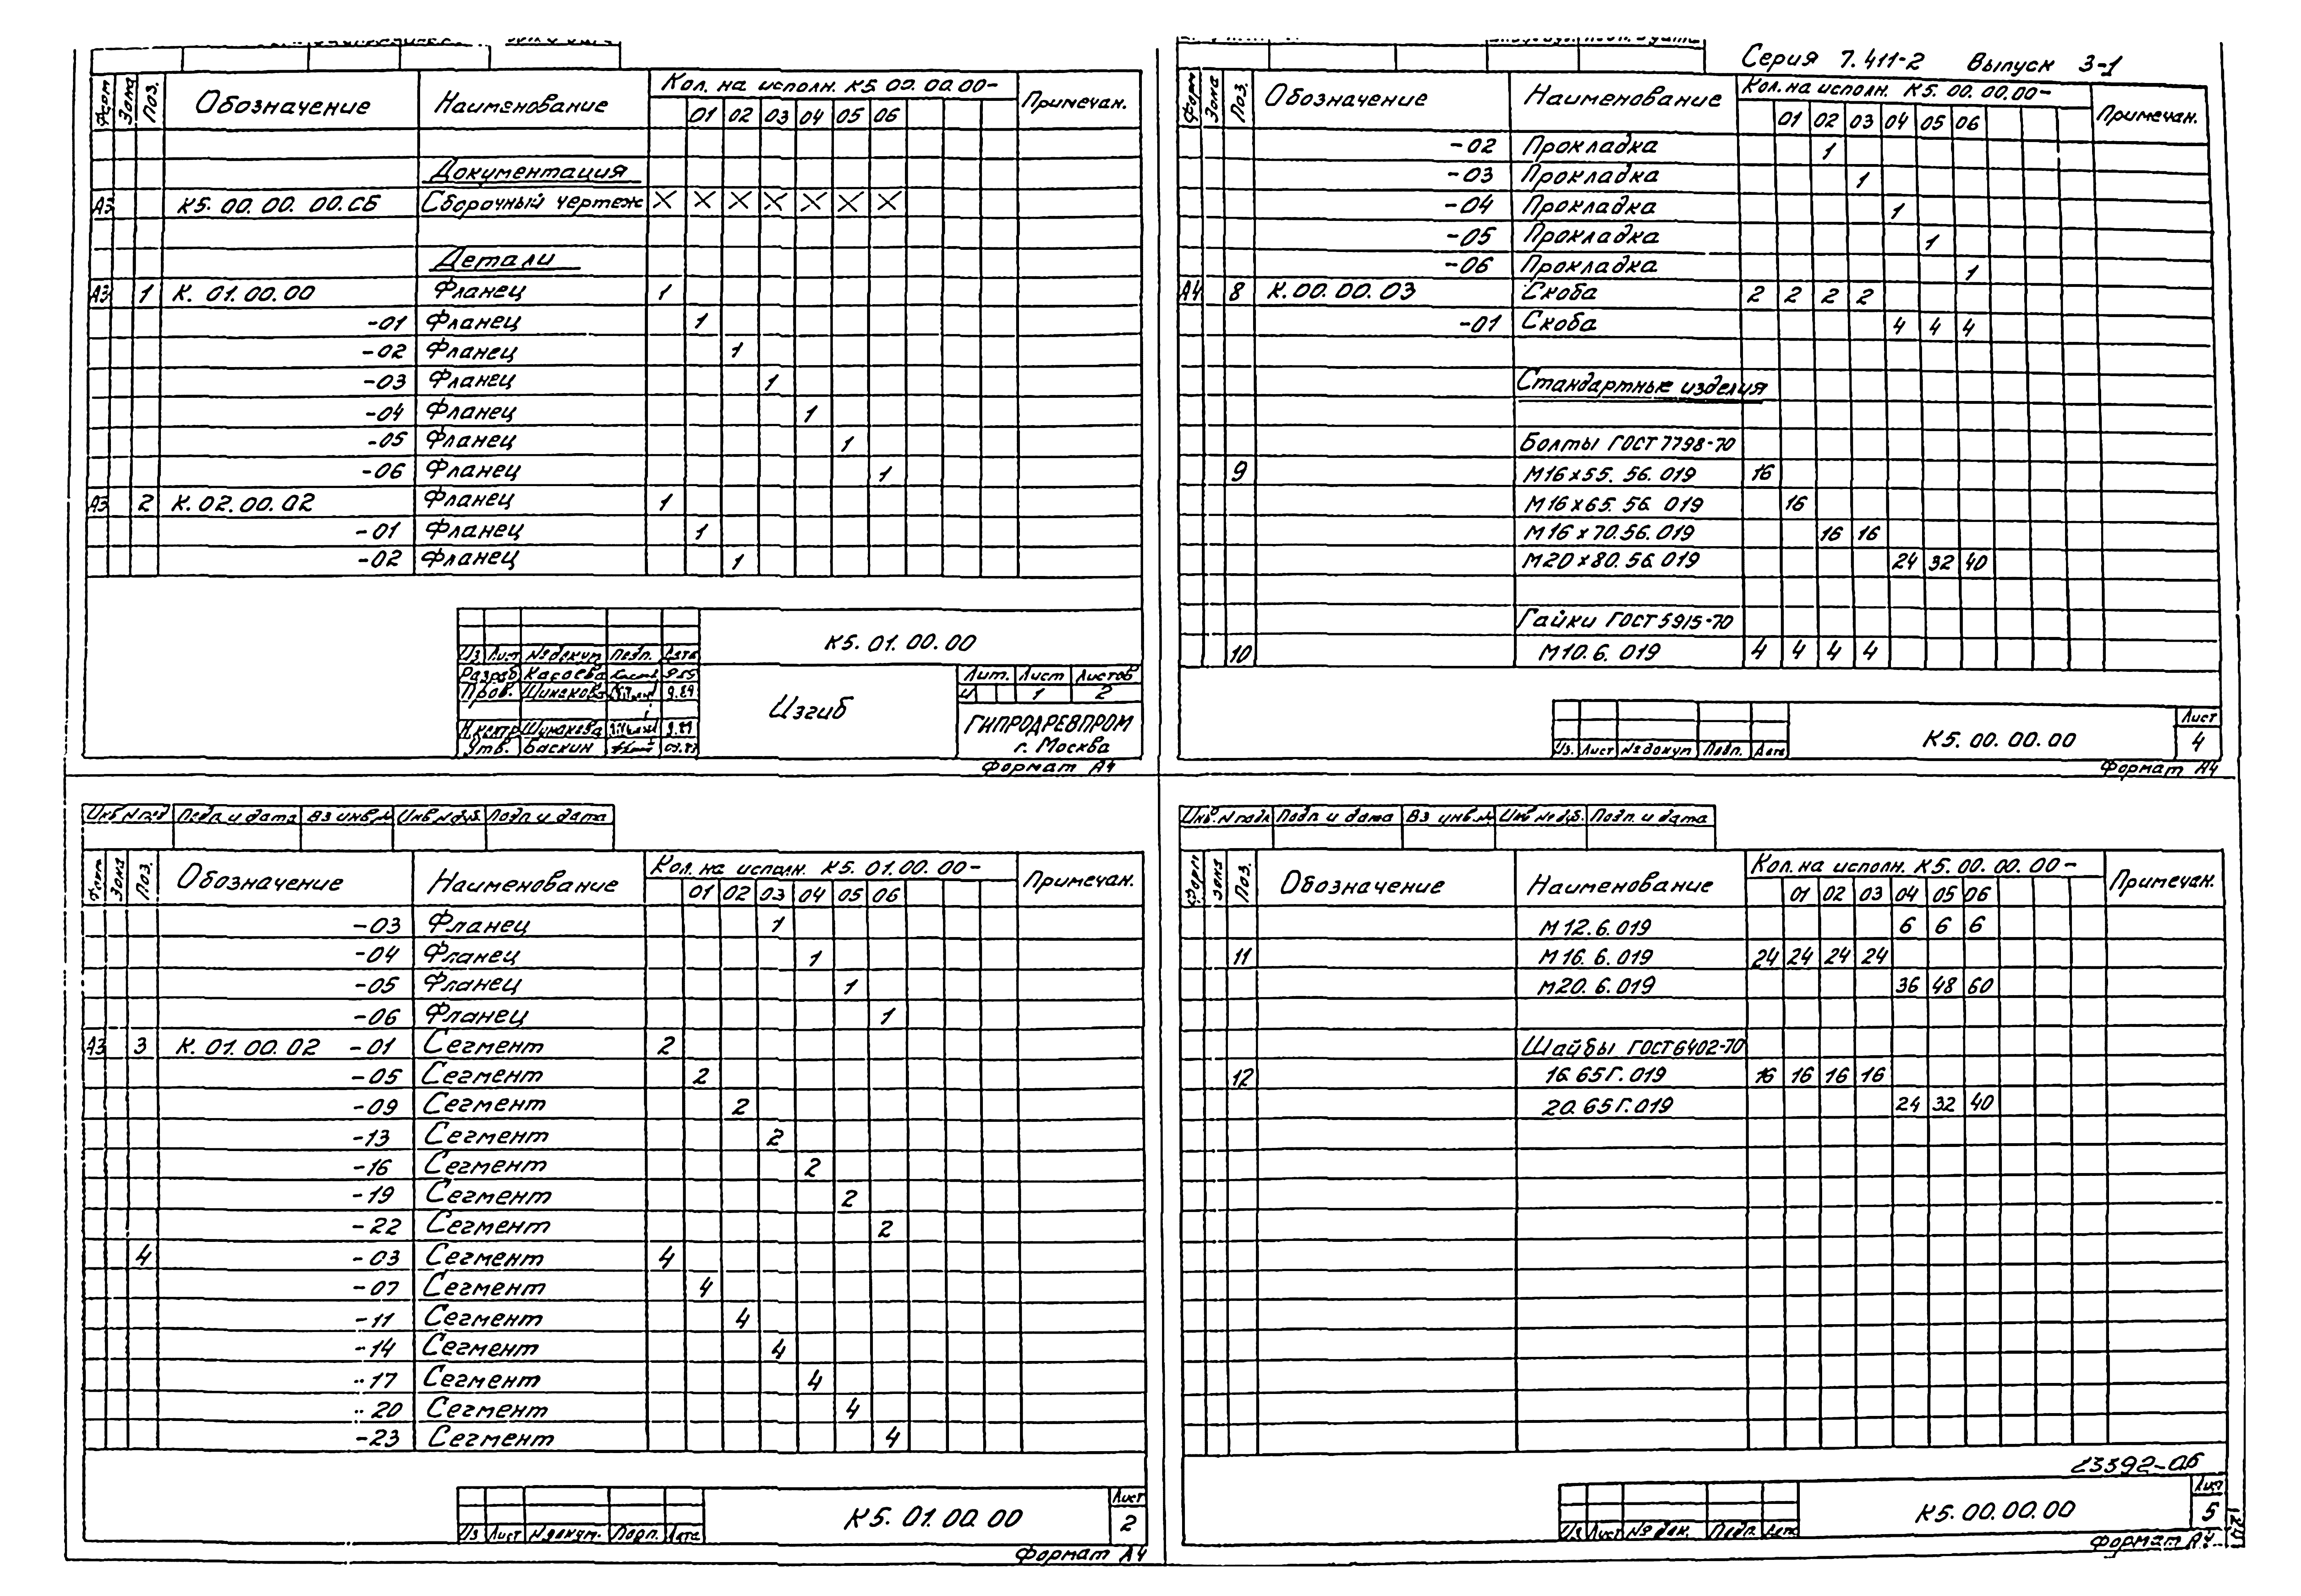 Форм Зона Поз. Обозначение Наименование Кол. на исполн. К5.00.00.00- Примечан.
01 02 03 04 05 06
Документация
А3 К5.00.00.00.СБ Сборочный чертеж X X X X X X X
Детали
А3 1 К.01.00.00 Фланец 1
-01 Фланец 1
-02 Фланец 1
-03 Фланец 1
-04 Фланец 1
-05 Фланец 1
-06 Фланец 1
А3 2 К.02.00.02 Фланец 1
-01 Фланец 1
-02 Фланец 1
К5.01.00.00
Из Лист № докум Подп. Дата
Разраб Касаева
Пров. Шинакова 9.89
Н.контр Шинакова 9.89
Утв. Баскин
Изгиб
Лит. Лист Листов
И 1 2
ГИПРОДРЕВПРОМ
г. Москва
Формат А4
Серия 7.411-2 Выпуск 3-1
Форм Зона Поз. Обозначение Наименование Кол. на исполн. К5.00.00.00- Примечан.
01 02 03 04 05 06
-02 Прокладка 1
-03 Прокладка 1
-04 Прокладка 1
-05 Прокладка 1
-06 Прокладка 1
А4 8 К.00.00.03 Скоба 2 2 2 2
-01 Скоба 4 4 4
Стандартные изделия
Болты ГОСТ 7798-70
9 М16х55.56.019 16
М16х65.56.019 16
М16х70.56.019 16 16
М20х80.56.019 24 32 40
Гайки ГОСТ 5915-70
10 М10.6.019 4 4 4 4
Из. Лист № докум Подп. Дата
К5.00.00.00
Лист
4
Формат А4
Инв № под Подп и дата Вз инв.№ Инв № дуб. Подп. и дата
Форм Зона Поз. Обозначение Наименование Кол. на исполн. К5.01.00.00- Примечан.
01 02 03 04 05 06
-03 Фланец 1
-04 Фланец 1
-05 Фланец 1
-06 Фланец 1
А3 3 К.01.00.02 -01 Сегмент 2
-05 Сегмент 2
-09 Сегмент 2
-13 Сегмент 2
-16 Сегмент 2
-19 Сегмент 2
-22 Сегмент 2
4 -03 Сегмент 4
-07 Сегмент 4
-11 Сегмент 4
-14 Сегмент 4
-17 Сегмент 4
-20 Сегмент 4
-23 Сегмент 4
Из Лист № докум. Подп. Дата
К5.01.00.00
Лист
2
Формат А4
Инв. № подл Подп и дата Вз инв.№ Инв № дуб. Подп. и дата
Форм Зона Поз. Обозначение Наименование Кол. на исполн. К5.00.00.00- Примечан.
01 02 03 04 05 06
М12.6.019 6 6 6
11 М16.6.019 24 24 24 24
М20.6.019 36 48 60
Шайбы ГОСТ 6402-70
12 16.65Г.019 16 16 16 16
20.65Г.019 24 32 40
23392-06
Из Лист № док. Подп. Дата
К5.00.00.00
Лист
5
Формат А4